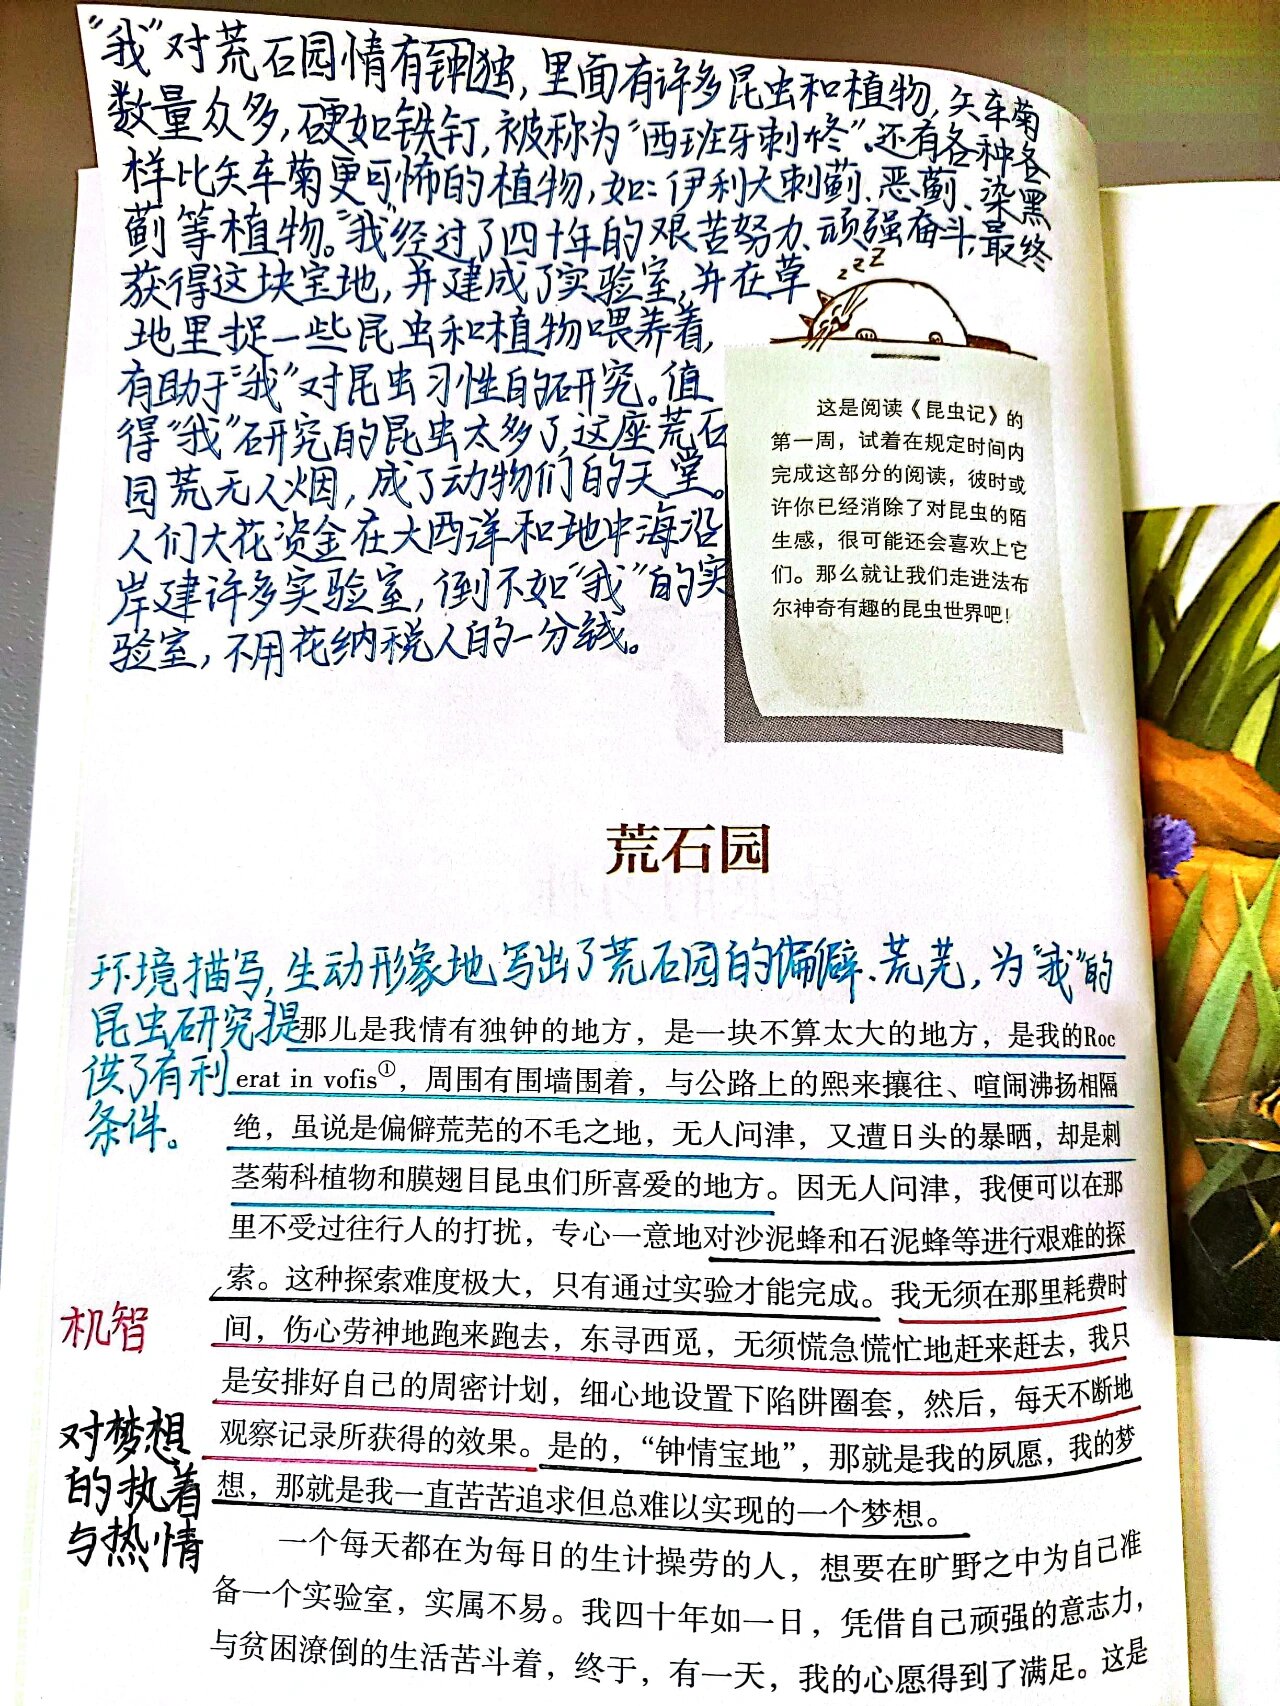 “我”对荒石园情有钟独，里面有许多昆虫和植物，矢车菊
数量众多，硬如铁钉，被称为“西班牙刺柊”。还有各种各
样比矢车菊更可怖的植物，如：伊利大刺蓟、恶蓟、染黑
蓟等植物。“我”经过了四十年的艰苦努力、顽强奋斗，最终
获得这块宝地，并建成了实验室，并在草
地里捉一些昆虫和植物喂养着，
有助于“我”对昆虫习性的研究。值
得“我”研究的昆虫太多了，这座荒石
园荒无人烟，成了动物们的天堂。
人们大花资金在大西洋和地中海沿
岸建许多实验室，倒不如“我”的实
验室，不用花纳税人的一分钱。
zzZ
这是阅读《昆虫记》的
第一周，试着在规定时间内
完成这部分的阅读，彼时或
许你已经消除了对昆虫的陌
生感，很可能还会喜欢上它
们。那么就让我们走进法布
尔神奇有趣的昆虫世界吧！
荒石园
环境描写，生动形象地写出了荒石园的偏僻、荒芜，为“我”的
昆虫研究提
供了有利
条件。
那儿是我情有独钟的地方，是一块不算太大的地方，是我的Roc
erat in vofis①，周围有围墙围着，与公路上的熙来攘往、喧闹沸扬相隔
绝，虽说是偏僻荒芜的不毛之地，无人问津，又遭日头的暴晒，却是刺
茎菊科植物和膜翅目昆虫们所喜爱的地方。因无人问津，我便可以在那
里不受过往行人的打扰，专心一意地对沙泥蜂和石泥蜂等进行艰难的探
索。这种探索难度极大，只有通过实验才能完成。我无须在那里耗费时
间，伤心劳神地跑来跑去，东寻西觅，无须慌急慌忙地赶来赶去，我只
是安排好自己的周密计划，细心地设置下陷阱圈套，然后，每天不断地
观察记录所获得的效果。是的，“钟情宝地”，那就是我的夙愿，我的梦
想，那就是我一直苦苦追求但总难以实现的一个梦想。
机智
对梦想
的执着
与热情
一个每天都在为每日的生计操劳的人，想要在旷野之中为自己准
备一个实验室，实属不易。我四十年如一日，凭借自己顽强的意志力，
与贫困潦倒的生活苦斗着，终于，有一天，我的心愿得到了满足。这是